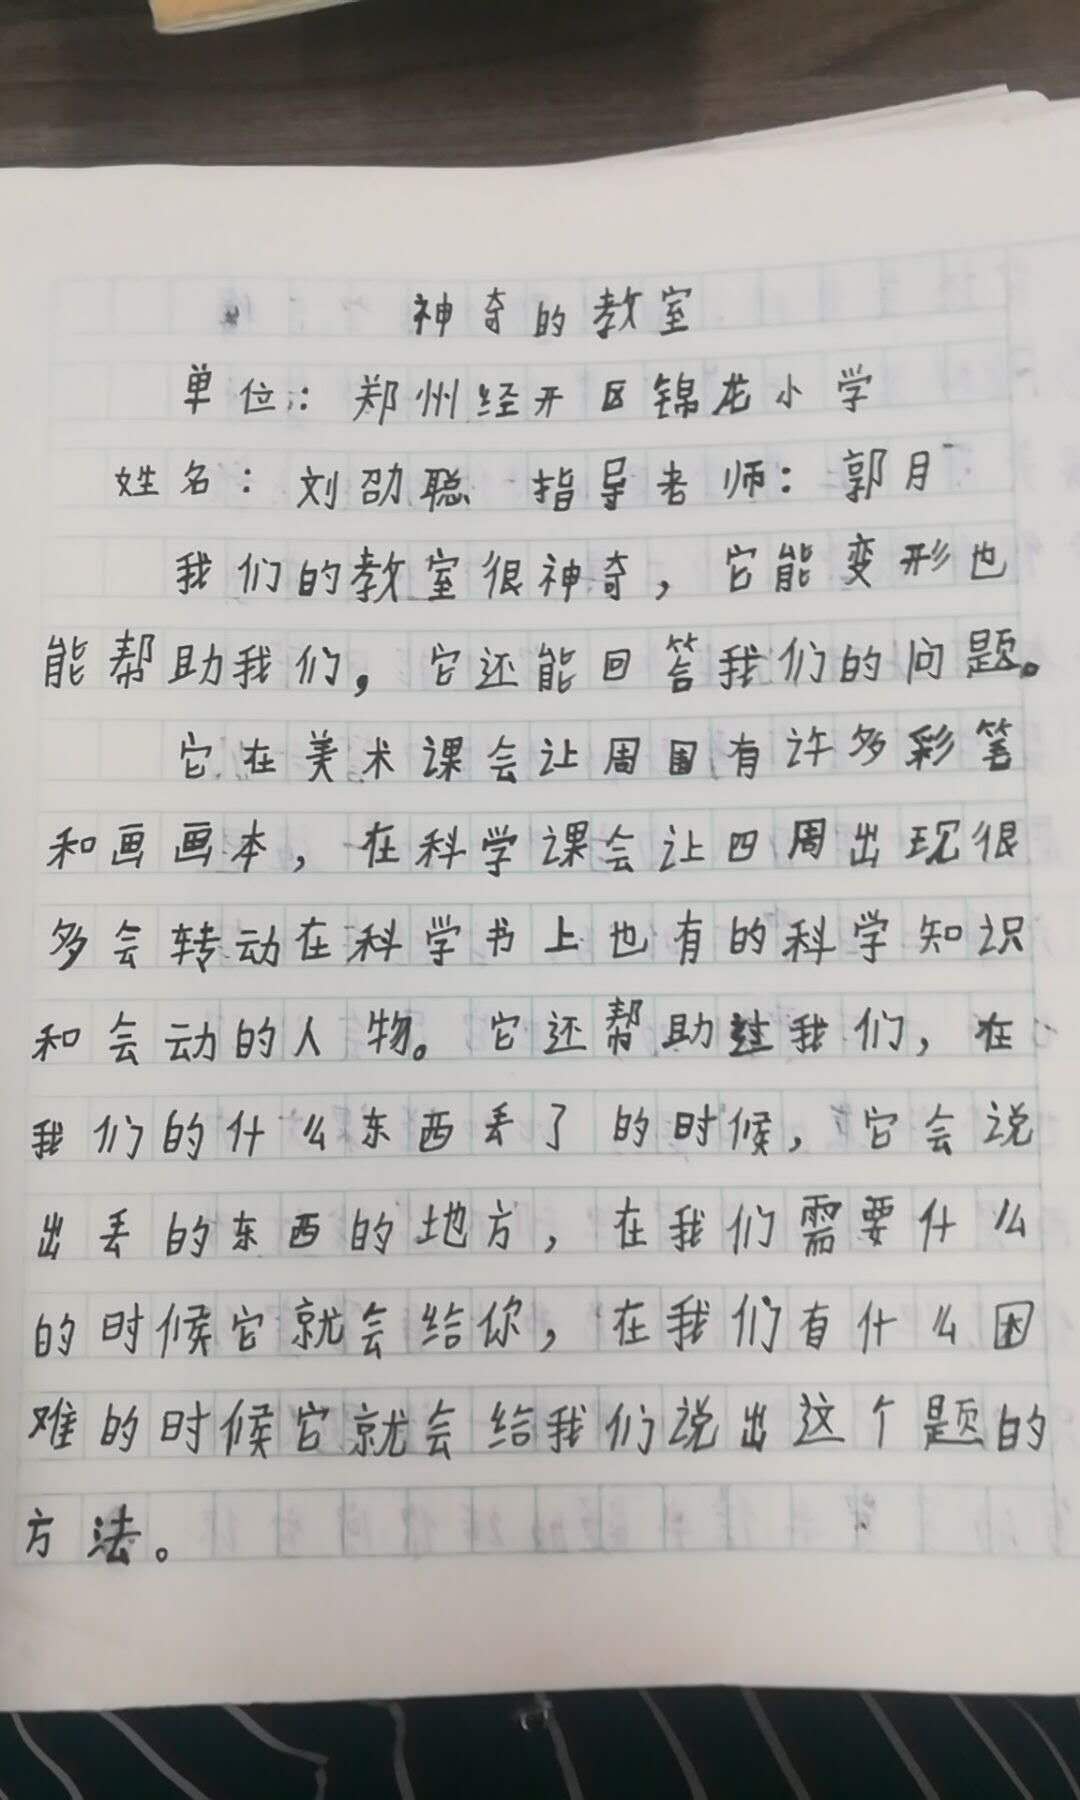 神奇的教室
单位：郑州经开区锦龙小学
姓名：刘劭聪 指导老师：郭月
我们的教室很神奇，它能变形也
能帮助我们，它还能回答我们的问题。
它在美术课会让周围有许多彩笔
和画画本，在科学课会让四周出现很
多会转动在科学书上也有的科学知识
和会动的人物。它还帮助过我们，在
我们的什么东西丢了的时候，它会说
出丢的东西的地方，在我们需要什么
的时候它就会给你，在我们有什么困
难的时候它就会给我们说出这个题的
方法。